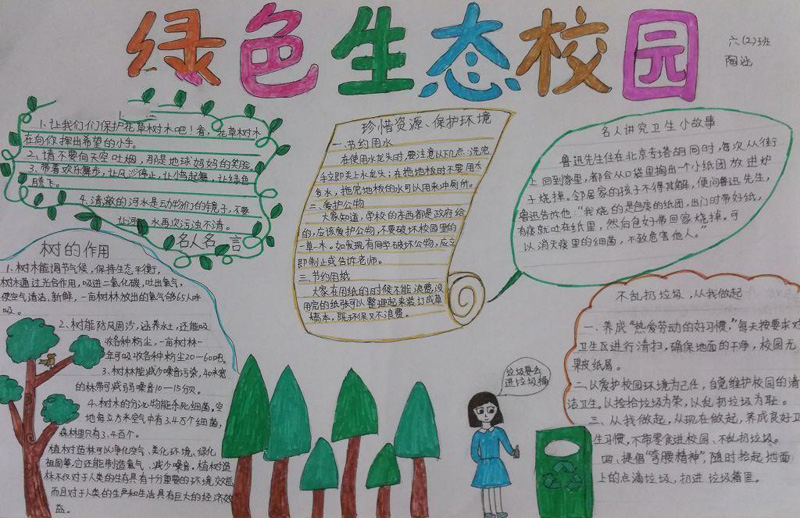 绿色生态校园
六(2)班
陶
1.让我们们保护花草树木吧!看,花草树木
在向你挥出希望的小手。
2.请不要向天空吐烟,那是地球妈妈的笑脸
3.带着欢乐舞步,让风沙停止,让小鸟起舞,让绿色
腾飞。
4.清澈的河水是动物们的镜子,不要
让河水再次污浊不清。
名人名言
珍惜资源、保护环境
一.节约用水
在使用水龙头时,要注意以几点:洗完
手立即关上水龙头;在拖地板时不要用太
多水,拖完地板的水可以用来冲厕所。
二.爱护公物
大家知道,学校的东西都是政府给
的,应该爱护公物,不要破坏校园里的
一草一木。如发现有同学破坏公物,应立
即制止或告诉老师。
三.节约用纸
大家在用纸的时候不能浪费,没
用完的纸张可以整理起来装订成草
稿本,既环保又不浪费。
名人讲究卫生小故事
鲁迅先生住在北京专塔胡同时,每次从街
上回到家里,都会从口袋里掏出一个小纸团放进炉
子烧掉。邻居家的孩子不得其解,便问鲁迅先生,
鲁迅告诉他:“我烧的是包痰的纸团,出门时带好纸,
有痰就吐在纸里,然后包好带回家烧掉。可
以消灭痰里的细菌,不致危害他人。”
树的作用
1.树木能调节气候,保持生态平衡,
树木通过光合作用,吸进二氧化碳,吐出氧气,
使空气清洁、新鲜,一亩树木放出的氧气够65人呼
吸。
2.树能防风固沙,涵养水土,还能吸
收各种粉尘,一亩树林一
年可吸收各种粉尘20—60吨
3.树林能减少噪音污染,40米宽
的林带可减弱噪音10—15分贝。
4.树木的分泌物能杀死细菌,空
地每立方米空气中有3、4万个细菌,
森林里只有3、4百个。
植树造林可以净化空气、美化环境、绿化
祖国等,它还能制造氧气、减少噪音,植树造
林不仅对于人类的生存具有十分重要的环境效应,
而且对于人类的生产和生活具有巨大的经济效
益。
垃圾要丢
进垃圾桶
不乱扔垃圾,从我做起
一、养成“热爱劳动的好习惯,”每天按要求对
卫生区进行清扫,确保地面的干净,校园无
果皮纸屑。
二、以爱护校园环境为己任,自觉维护校园的清
洁卫生。以捡拾垃圾为荣,以乱扔垃圾为耻。
三、从我做起,从现在做起,养成良好卫
生习惯,不带零食进校园、不乱扔垃圾。
四、提倡“弯腰精神”,随时拾起地面
上的点滴垃圾,扔进垃圾箱里。